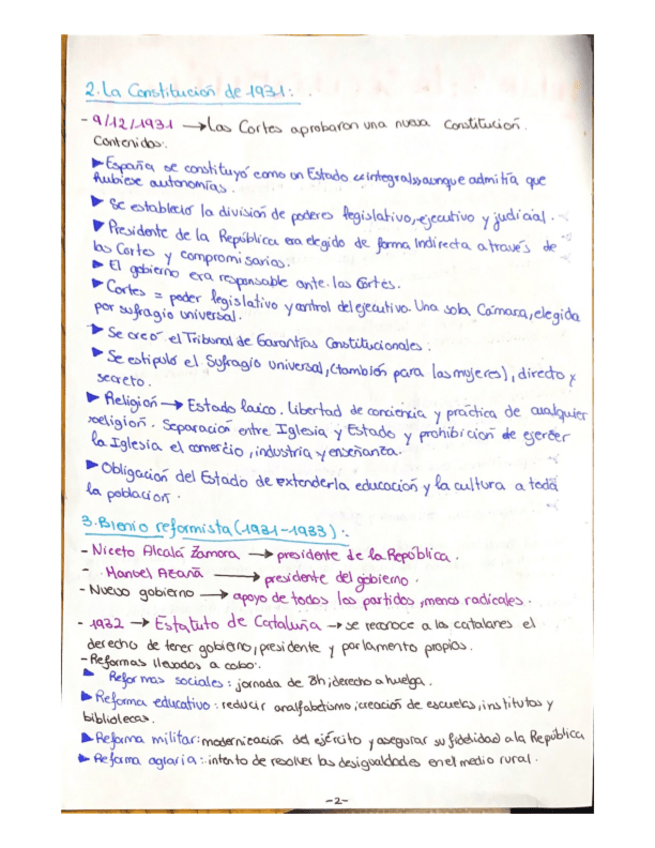 2. La Constitución de 1931:
- 9/12/1931 → Las Cortes aprobaron una nueva Constitución.
Contenidos:
▶ España se constituyó como un Estado «integral» aunque admitía que
hubiese autonomías.
▶ Se estableció la división de poderes legislativo, ejecutivo y judicial.
▶ Presidente de la República era elegido de forma indirecta a través de
las Cortes y compromisarios.
▶ El gobierno era responsable ante las Cortes.
▶ Cortes = poder legislativo y control del ejecutivo. Una sola Cámara, elegida
por sufragio universal.
▶ Se creó el Tribunal de Garantías Constitucionales.
▶ Se estipuló el Sufragio universal, (también para las mujeres), directo y
secreto.
▶ Religión → Estado laico. libertad de conciencia y práctica de cualquier
religión. Separación entre Iglesia y Estado y prohibición de ejercer
la Iglesia el comercio, industria y enseñanza.
▶ Obligación del Estado de extender la educación y la cultura a toda
la población.
3. Bienio reformista (1931-1933):
- Niceto Alcalá Zamora → presidente de la República.
- Manuel Azaña → presidente del gobierno.
- Nuevo gobierno → apoyo de todos los partidos, menos radicales.
- 1932 → Estatuto de Cataluña → se reconoce a los catalanes el
derecho de tener gobierno, presidente y parlamento propios.
- Reformas llevadas a cabo:
▶ Reformas sociales: jornada de 8h; derecho a huelga.
▶ Reforma educativo: reducir analfabetismo; creación de escuelas, institutos y
bibliotecas.
▶ Reforma militar: modernización del ejército y asegurar su fidelidad a la República
▶ Reforma agraria: intento de resolver las desigualdades en el medio rural.
-2-